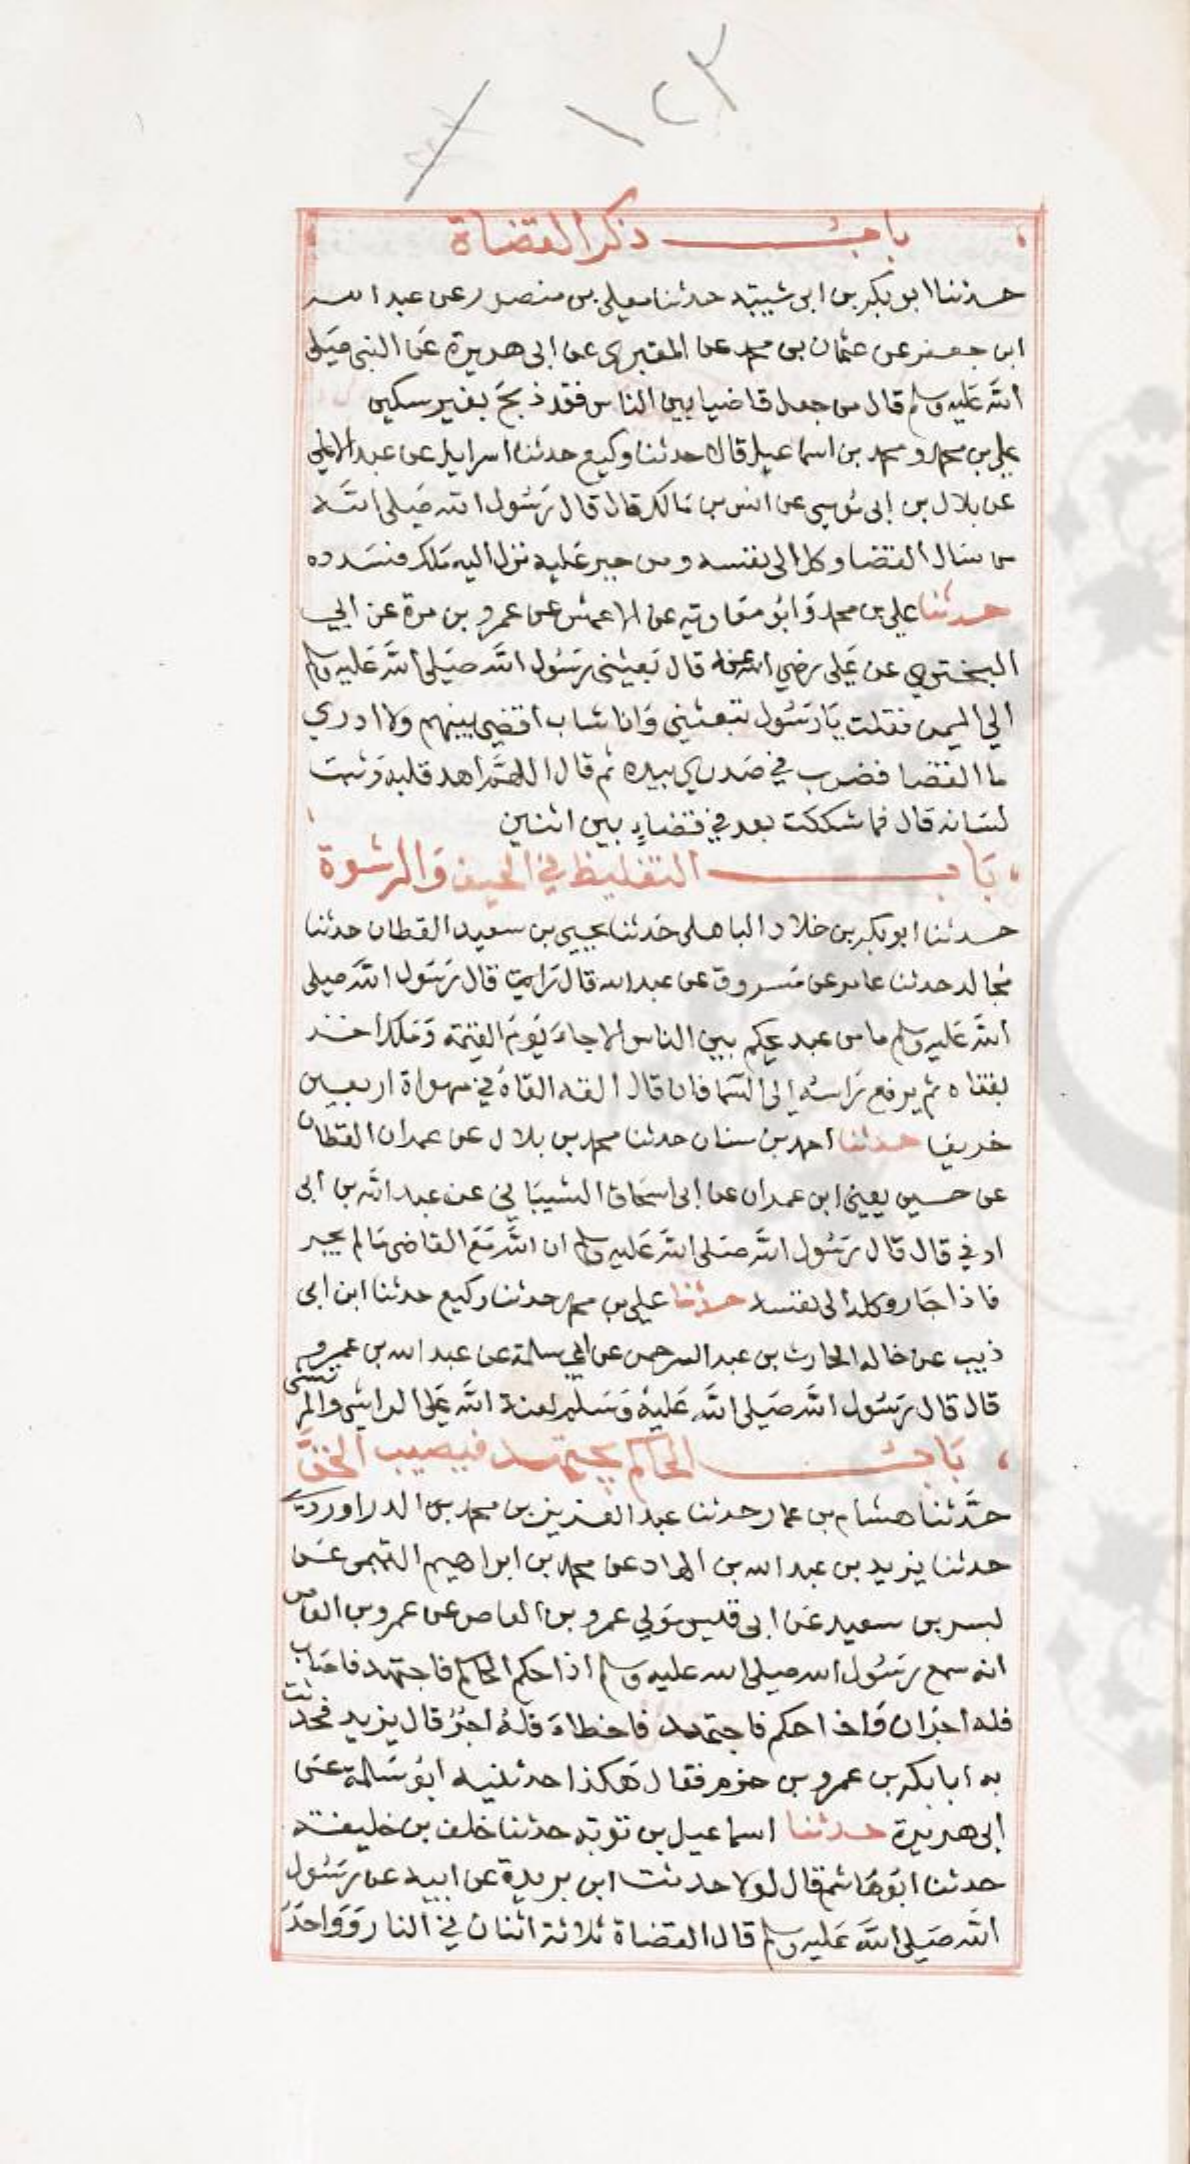 ١٢٣
باب ذكر القضاة
حدثنا ابو بكر بن ابى شيبة حدثنا معلى بن منصور عن عبد الله
ابن جعفر عن عثمان بن محمد عن المقبرى عن ابى هريرة عن النبى صلى
الله عليه وسلم قال من جعل قاضيا بين الناس فقد ذبح بغير سكين
على بن محمد ومحمد بن اسماعيل قالا حدثنا وكيع حدثنا اسرايل عن عبد الاعلى
عن بلال بن ابى موسى عن انس بن مالك قال قال رسول الله صلى الله
من سال القضا وكل الى نفسه ومن جبر عليه نزل اليه ملك فسدده
حدثنا على بن محمد وابو معاوية عن الاعمش عن عمرو بن مرة عن ابى
البختري عن على رضي الله عنه قال بعثنى رسول الله صلى الله عليه وسلم
الى اليمن فقلت يا رسول تبعثنى وانا شاب اقضي بينهم ولا ادري
ما القضا فضرب في صدري بيده ثم قال اللهم اهد قلبه وثبت
لسانه قال فما شككت بعد في قضاء بين اثنين
باب التغليظ في الحيف والرشوة
حدثنا ابو بكر بن خلاد الباهلى حدثنا يحيى بن سعيد القطان حدثنا
مجالد حدثنا عامر عن مسروق عن عبد الله قال قال رسول الله صلى
الله عليه وسلم ما من عبد يحكم بين الناس الا جاء يوم القيمة وملك اخذ
بقفاه ثم يرفع راسه الى السما فان قال القه القاه في مهواة اربعين
خريفا حدثنا احمد بن سنان حدثنا محمد بن بلال عن عمران القطان
عن حسين يعنى ابن عمران عن ابى اسحاق الشيبانى عن عبد الله بن ابى
اوفي قال قال رسول الله صلى الله عليه وسلم ان الله مع القاضى مالم يجر
فاذا جار وكله الى نفسه حدثنا على بن محمد حدثنا وكيع حدثنا ابن ابى
ذيب عن خاله الحارث بن عبد الرحمن عن ابى سلمة عن عبد الله بن عمرو
قال قال رسول الله صلى الله عليه وسلم لعنة الله على الراشى والمرتشى
باب الحاكم يجتهد فيصيب الحق
حدثنا هشام بن عمار حدثنا عبد العزيز بن محمد بن الدراوردي
حدثنا يزيد بن عبد الله بن الهاد عن محمد بن ابراهيم التيمى عن
بسر بن سعيد عن ابى قيس مولى عمرو بن العاص عن عمرو بن العاص
انه سمع رسول الله صلى الله عليه وسلم اذا حكم الحاكم فاجتهد فاصاب
فله اجران واذا حكم فاجتهد فاخطاء فله اجر قال يزيد فحدثت
به ابا بكر بن عمرو بن حزم فقال هكذا حدثنيه ابو سلمة عن
ابى هريرة حدثنا اسماعيل بن توبة حدثنا خلف بن خليفة
حدثنا ابو هاشم قال لولا حديث ابن بريدة عن ابيه عن رسول
الله صلى الله عليه وسلم قال القضاة ثلاثة اثنان في النار وواحد